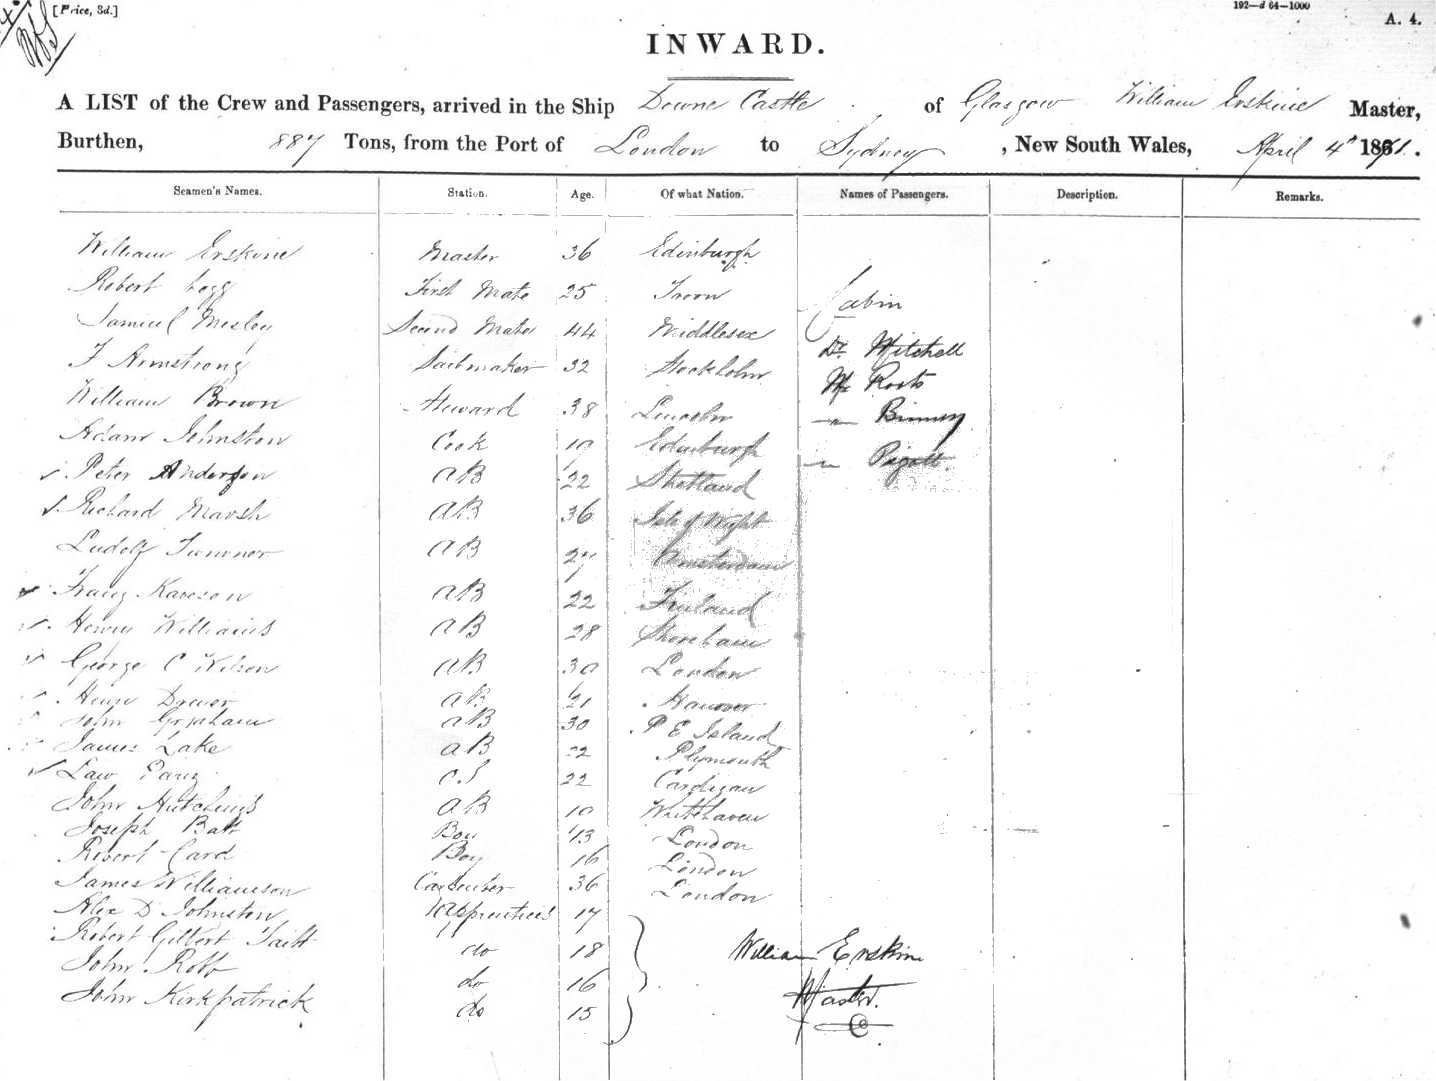 [Price, 3d.]
192—d 64—1000
A. 4.
INWARD.
A LIST of the Crew and Passengers, arrived in the Ship Doune Castle of Glasgow William Erskine Master,
Burthen, 887 Tons, from the Port of London to Sydney, New South Wales, April 4th 1871.
Seamen's Names. Station. Age. Of what Nation. Names of Passengers. Description. Remarks.
William Erskine Master 36 Edinburgh
Robert Legg First Mate 25 Troon Cabin
Samuel Mesley Second Mate 44 Middlesex
F Armstrong Sailmaker 32 Stockholm Dr Mitchell
William Brown Steward 38 Lincoln Mr Roots
Adam Johnston Cook 19 Edinburgh " Binney
Peter Anderson AB 22 Shetland " Pigott.
Richard Marsh AB 36 Isle of Wight
Ludolf AB 27 Amsterdam
Franz AB 22 Finland
Henry Williams AB 28 Shoreham
George C Wilson AB 30 London
AB 21 Hanover
John Graham AB 30 P E Island
James Lake AB 22 Plymouth
22 Cardigan
John Hutchings AB 19 Whithaven
Joseph Boy 13 London
Robert Card Boy 16 London
James Williamson Carpenter 36 London
Alex D Johnston Apprentices 17
Robert Gilbert do 18 William Erskine
John Robb do 16 Master.
John Kirkpatrick do 15